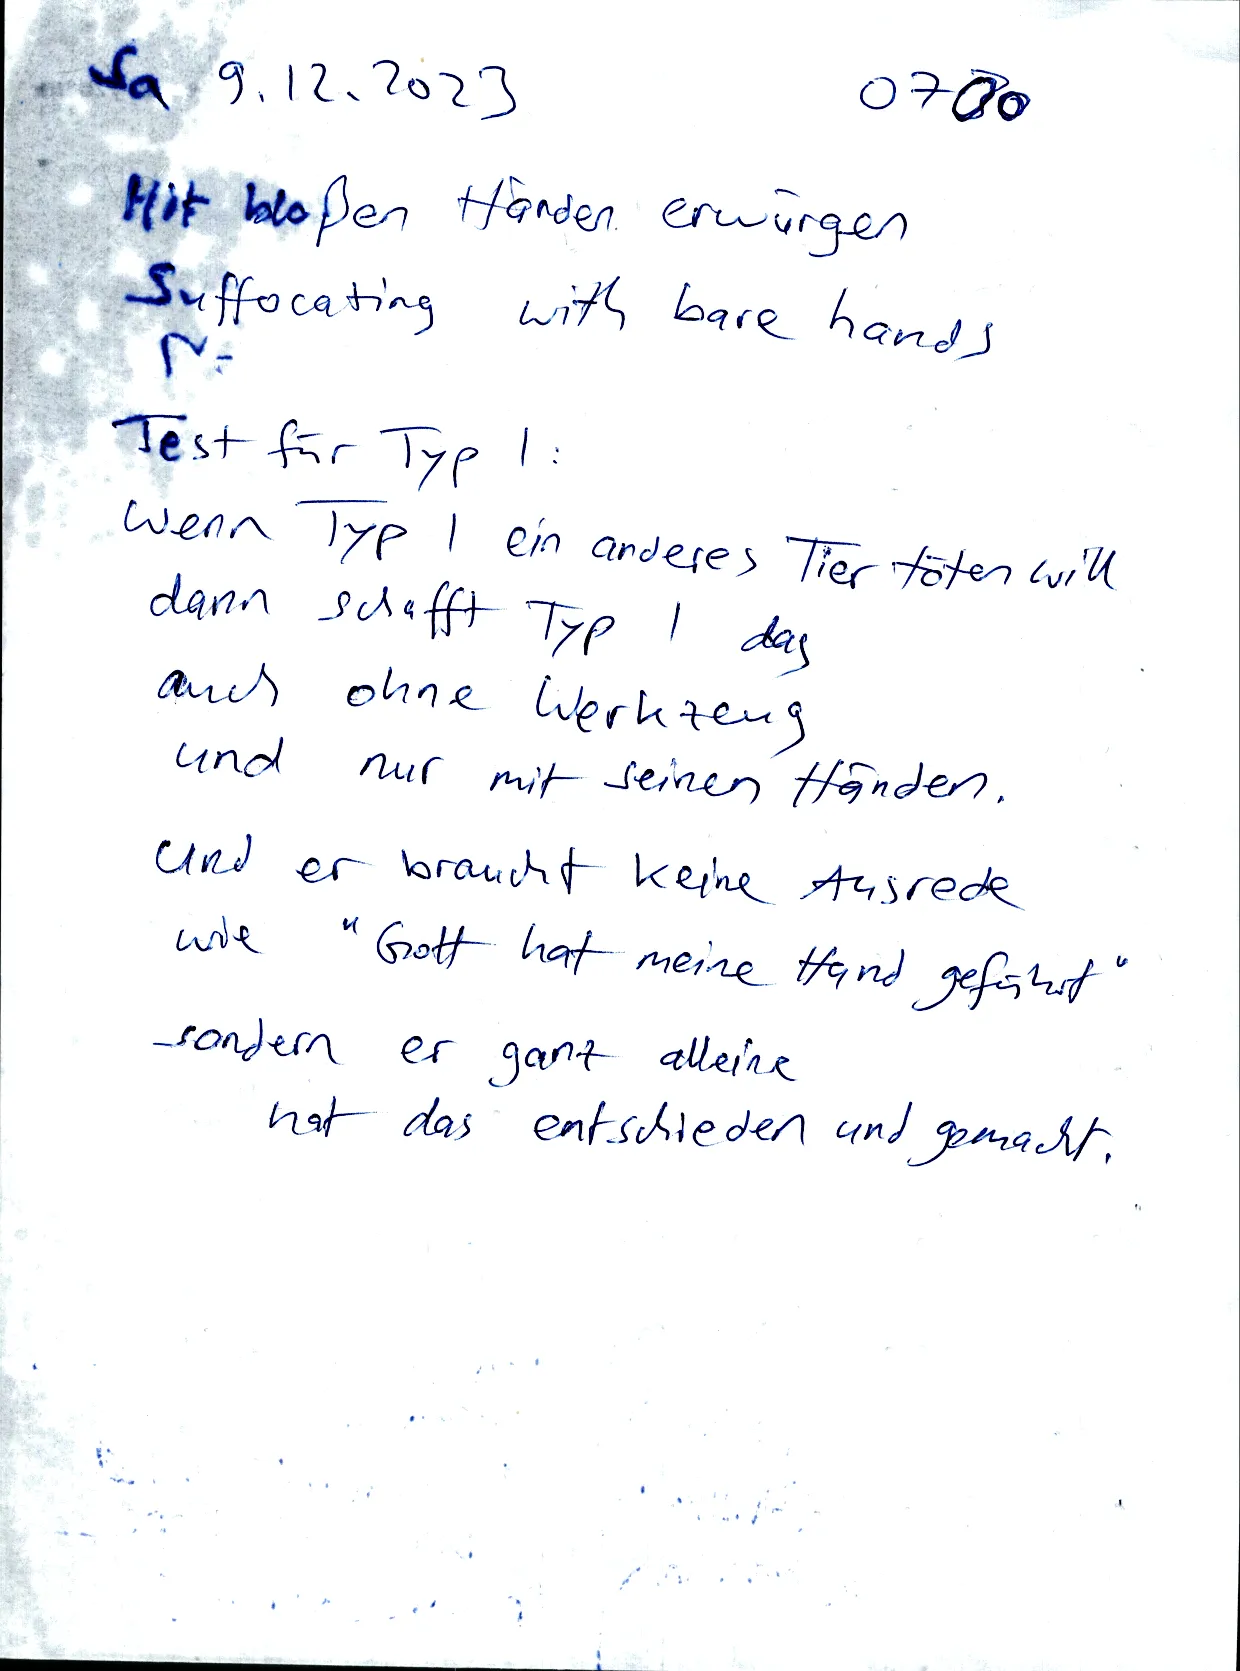 Sa 9.12.2023 0700
Mit bloßen Händen erwürgen
Suffocating with bare hands
Test für Typ 1:
Wenn Typ 1 ein anderes Tier töten will
dann schafft Typ 1 das
auch ohne Werkzeug
und nur mit seinen Händen.
Und er braucht keine Ausrede
wie "Gott hat meine Hand geführt"
sondern er ganz alleine
hat das entschieden und gemacht.